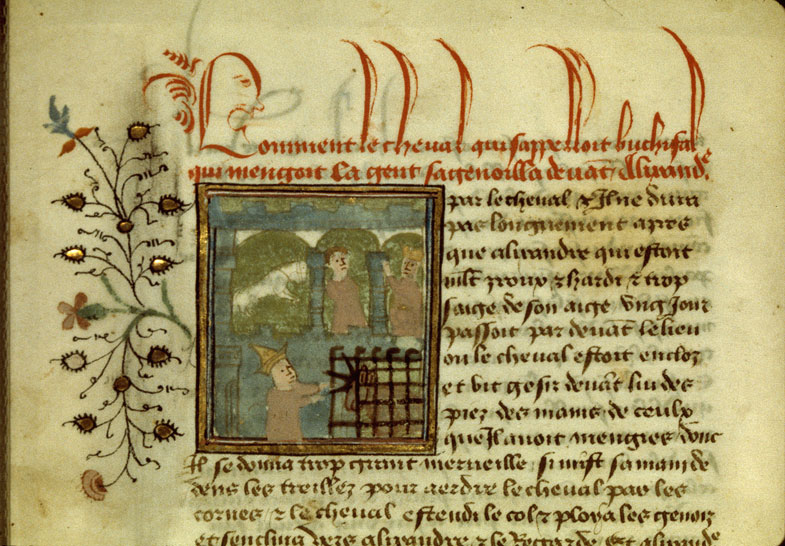 Comment le cheval qui sappelloit buchifal
qui mengoit la gent sagenoilla devāt Alixandᵉ.
par le cheval & Il ne dura
pas longuement apres
que alixandre qui estoit
ml̅t proux & hardi & trop
saige de son aige vng Jour
passoit par devāt le lieu
ou le cheval estoit encloz
et vit gesir devāt lui des
piez des mains de ceulx
que Il auoit mengies donc
Il se donna trop grant merueille si mist sa main de
dens les treillez pour aerdre le cheval par les
cornes & le cheval estendi le col & ploya les genoiz
et senclina vers alixandre & le Regarde Et alixandᵉ